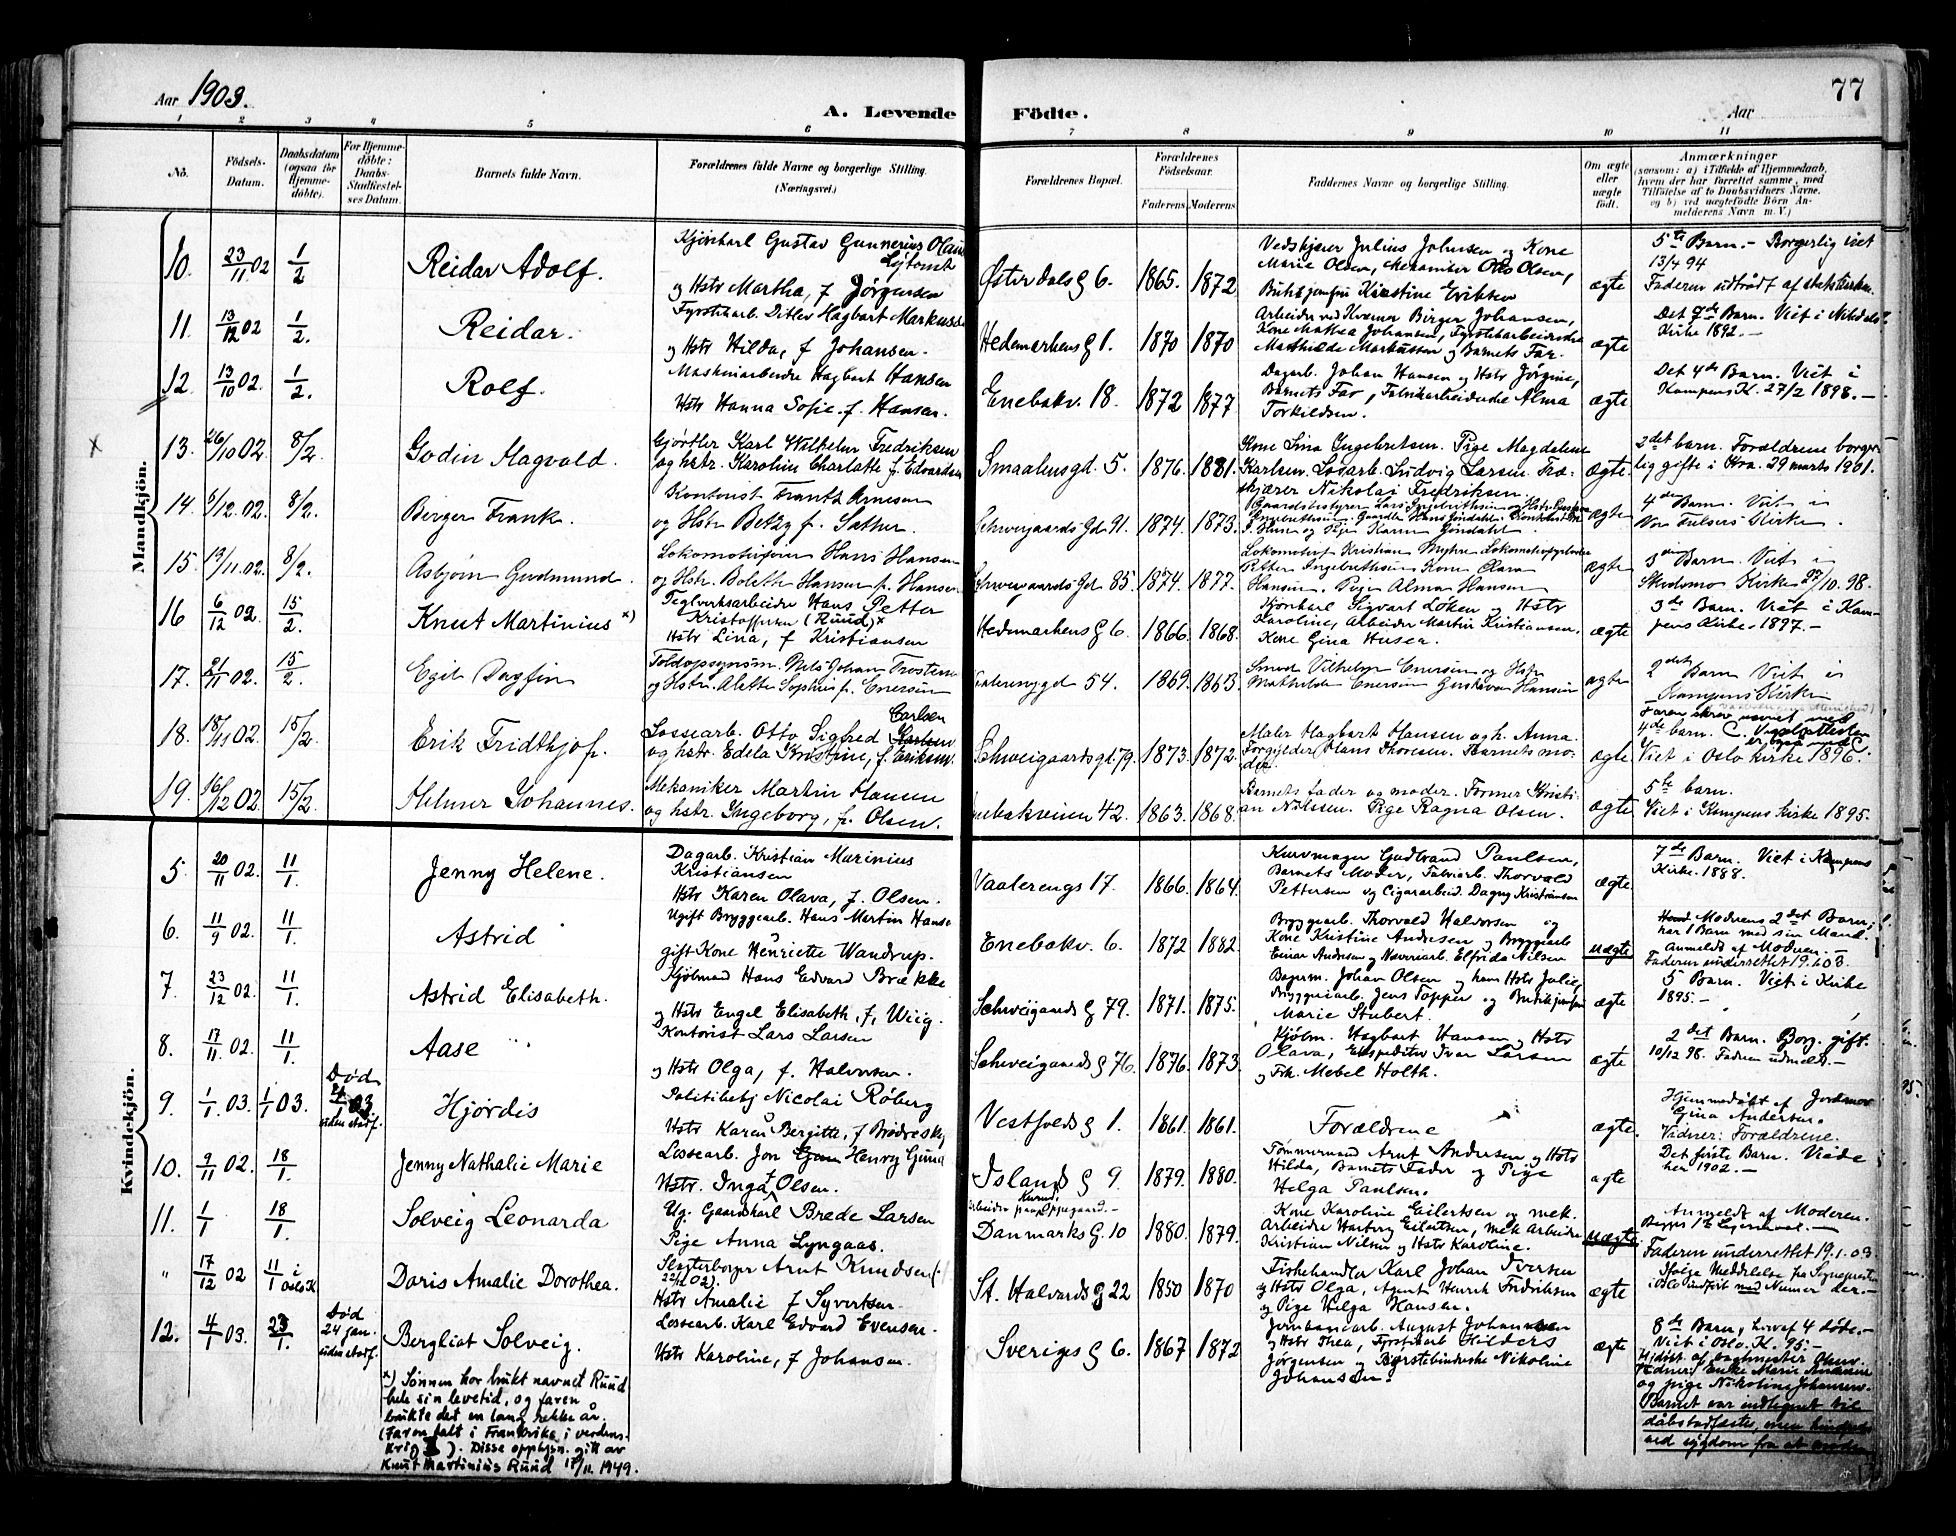 Aar 1903.
A. Levende Födte.
Aar
77
1 2 3 4 5 6 7 8 9 10 11
No.
Födsels-Datum.
Daabsdatum (ogsaa for Hjemmedöbte).
For Hjemmedöbte: Daabs-Stadfæstelses Datum.
Barnets fulde Navn.
Forældrenes fulde Navne og borgerlige Stilling. (Næringsvei.)
Forældrenes Bopæl.
Forældrenes Födselsaar.
Faderens. Moderens.
Faddernes Navne og borgerlige Stilling.
Om ægte eller uægte födt.
Anmærkninger
(saasom: a) i Tilfælde af Hjemmedaab, hvem der har forrettet samme, med Tilföielse af to Daabsvidners Navne, og b) ved uægtefödte Börn Anmelderens Navn m. V.)
Mandkjön.
10. 23/11 02 1/2 Reidar Adolf.
Kjørekarl Gustav Gunnerius Olaus
og Hstr Martha, f Jørgensen
Østerdalsg 6. 1865. 1872
Vedskjærer Julius Johnsen og Kone
Marie Olsen, Mekaniker Otto Olsen,
Kristine Eriksen
ægte
5te Barn. - Borgerlig viet
13/4 94
Faderen udtrådt af statskirken.
11. 13/12 02 1/2. Reidar.
Fyrstikarb. Ditlev Hagbart Markussen
og Hstr Hilda, f Johansen.
Hedemarkens g 1. 1870 1870
Arbeider ved Kværner Birger Johansen,
Kone Mathea Johansen, Fyrstikarbeiderske
Mathilde Markussen og Barnets Far.
ægte
Kirke 1892. -
12. 13/10 02. 1/2. Rolf.
Maskinarbeider Hagbart Hansen
Hstr Hanna Sofie f. Hansen.
Enebakv. 18. 1872 1877
Dagarb. Johan Hansen og Hstr Jørgine,
Barnets Far, Fabrikarbeiderske Alma
Torkildsen.
ægte
Det 4de Barn. Viet i
Kampens K. 27/2 1898. -
x
13. 26/10 02 8/2. Godin Magvald.
Gjørtler Karl Wilhelm Fredriksen
og hstr. Karoline Charlotte f. Edvardsen
Smaalensgd. 5. 1876. 1881.
Kone Lina Ingebretsen. Pige Magdalene
Karlsen. Losarb. Ludvig Larsen. Træ-
skjærer Nikolai Fredriksen.
ægte.
2det barn. Forældrene borger-
lig gifte i Kra. 29 marts 1901.
14. 5/12. 02. 8/2. Birger Frank.
Kontorist Frantz Arnesen
og Hstr Betzy f. Sather.
Schweigaards Gd. 91. 1874. 1873.
ægte
4de Barn. Viet i
Vor Frelsers Kirke.
15. 19/11. 02. 8/2. Asbjørn Gudmund.
Hans Hansen
og Hstr. Boletth Hansen f. Hansen
Schweigaards Gd 85. 1874. 1877.
Kristian Myhre
Petter Ingebrethsen Kone Olava
Hansen. Pige Alma Hansen
ægte
3die Barn. Viet i
Skedsmo Kirke 27/10. 98.
16 6/12 02. 15/2. Knut Martinius x)
Teglverksarbeider Hans Petter
Kristoffersen (Ruud) x
Hstr Lina, f Kristiansen
Hedemarkens g 6. 1866. 1868.
Kjørekarl Sigvart Løken og Hstr
Karoline, Arbeider Martin Kristiansen,
Kone Gina Huser.
ægte
3de Barn. Viet i Kam-
pens Kirke. 1897. -
17. 21/11 02. 15/2. Egil Dagfin
Toldopsynsm. Nils Johan Trosten
og Hstr. Alette Sophie f. Enersen
Vaalerenggd 54. 1869. 1863.
Smed Vilhelm Enersen og Hstr
Mathilde Enersen Gustava Hansen
ægte
2det Barn Viet i
Kampens Kirke
18. 18/11 02. 15/2. Erik Fridthjof.
Carlsen
Lossearb. Otto Sigfred Karlsen
og hstr. Edela Kristine, f. Eriksen.
Schweigaardsgd. 79. 1873. 1872.
Maler Hagbart Hansen og h. Anna.
Forgylder Olaus Thoresen. Barnets mo-
der.
ægte.
Faren skrev navnet med
C. Vigselattesten
er også med C
4de barn.
Viet i Oslo kirke 1896.
19. 16/12 02. 15/2. Helmer Johannes.
Mekaniker Martin Hansen
og hstr. Ingeborg, f. Olsen.
Enebakveien 42. 1863. 1868.
Barnets fader og moder. Former Kristi-
an Nielsen. Pige Ragna Olsen.
ægte
5te barn.
Viet i Kampens Kirke 1895.
Kvindekjön.
5. 20/11 02. 11/1. Jenny Helene.
Dagarb. Kristian Marinius
Kristiansen
Hstr Karen Olava, f. Olsen.
Vaalerengs 17. 1866. 1864.
Kurvmager Gudbrand Paulsen,
Barnets Moder, Fabrikarb. Thorvald
Pettersen og Cigararbeid. Dagny Kristiansen
ægte.
7de Barn. Viet i Kampens
Kirke. 1888.
6. 11/9 02. 11/1. Astrid
Ugift Bryggearb. Hans Martin Hansen
gift Kone Henriette Wandrup.
Enebakv. 6. 1872 1882.
Bryggearb. Thorvald Halvorsen og
Kone Kristine Andresen og Bryggearb
Einar Andersen og Væveriarb. Elfrida Nilsen
uægte
Moderens 2det Barn;
har 1 Barn med sin Mand.
Anmeldt af Moderen. -
Faderen underrettet 19.1.03.
7. 23/12 02. 11/1. Astrid Elisabeth.
Kjølmand Hans Edvard Brække
og Hstr Engel Elisabeth, f. Wiig.
Schweigaards g 79. 1871. 1875.
Bagerm. Johan Olsen og hans Hstr Julie,
Bryggeriarb. Jens Topper og Butikjomfru
Marie Stubert.
ægte
5 Barn. Viet i Kirke
1895. -
8. 17/11. 02. 11/1. Aase
Kontorist Lars Larsen
og Hstr Olga, f. Halvorsen.
Schweigaards g 76. 1876. 1873.
Kjølm. Hagbart Hansen og Hstr
Olava, Ekspeditør Ivar Larsen
og Frk. Mebel Holth.
ægte
2det Barn. Borg. gift.
10/12 98. Fadren udmeldt. -
9. 1/1 03. 1/1 03. Død 4/1 03 uden stadf. Hjørdis
Politibetj Nicolai Røberg
Hstr Karen Bergitte, f Brødreskift
Vestfolds g 1. 1861. 1861.
Forældrene
ægte.
Hjemmedøbt af Jordmor
Gina Andersen.
Vidner: Forældrene.
10. 9/11 02. 18/1. Jenny Nathalie Marie
Lossearb. Jon Henry Gjund
Hstr. Inga Olsen.
Islands g 9. 1879. 1880.
Tømmermand Arnt Andersen og Hstr
Hilda, Barnets Fader og Pige
Helga Paulsen.
ægte
Det første Barn. Viede
her 1902. -
11. 1/1 18/1. Solveig Leonarda
Ug. Gaardskarl Brede Larsen
Pige Anna Lyngaas.
Danmarks G. 10 1880. 1879.
Kone Karoline Eilertsen og mek.
Arbeider Harberg Eilertsen, mek Arbeider
Kristian Nilsen og Hstr Karoline.
uægte
Anmeldt af Moderen.
Begges 1te Lejermaal. -
Faderen underrettet 19.1.03.
" 17/12 02 11/1 i Oslo K Doris Amalie Dorothea.
Slagterborger Arnt Knudsen
Hstr Amalie f Syvertsen.
St. Halvards g 22 1850 1870
Fiskehandler Karl Johan Iversen
og Hstr Olga, Agent Henrik Fredriksen
og Pige Helga Hansen.
ægte
Ifølge Meddelelse fra Sognepresten
i Oslo indført med Numer der. -
12. 4/1 03. 23/1. Død 24 jan. uden stadf. Bergliat Solveig.
Lossearb. Karl Edvard Evensen.
Hstr Karoline, f Johansen.
Sveriges g 6. 1867 1872
Jernbanearb. August Johansen
og Hstr Thea, Fyrstikarb Hilders
Jørgensen og Børstebinderske Nikoline
Johansen.
ægte
8de Barn, hvoraf 4 døde. -
Viet i Oslo. K. 95. -
og pige Nikoline Johansen.
Barnet var indtegnet til
dåbstadfæstes, men
ved sygdom fra at
x) Sønnen har brukt navnet Ruud
hele sin levetid, og faren
brukte det en lang rekke år.
(Faren falt i Frankrike i verdens-
krig I). Disse opplysn. gitt av
Knut Martinius Ruud 17/11. 1949.